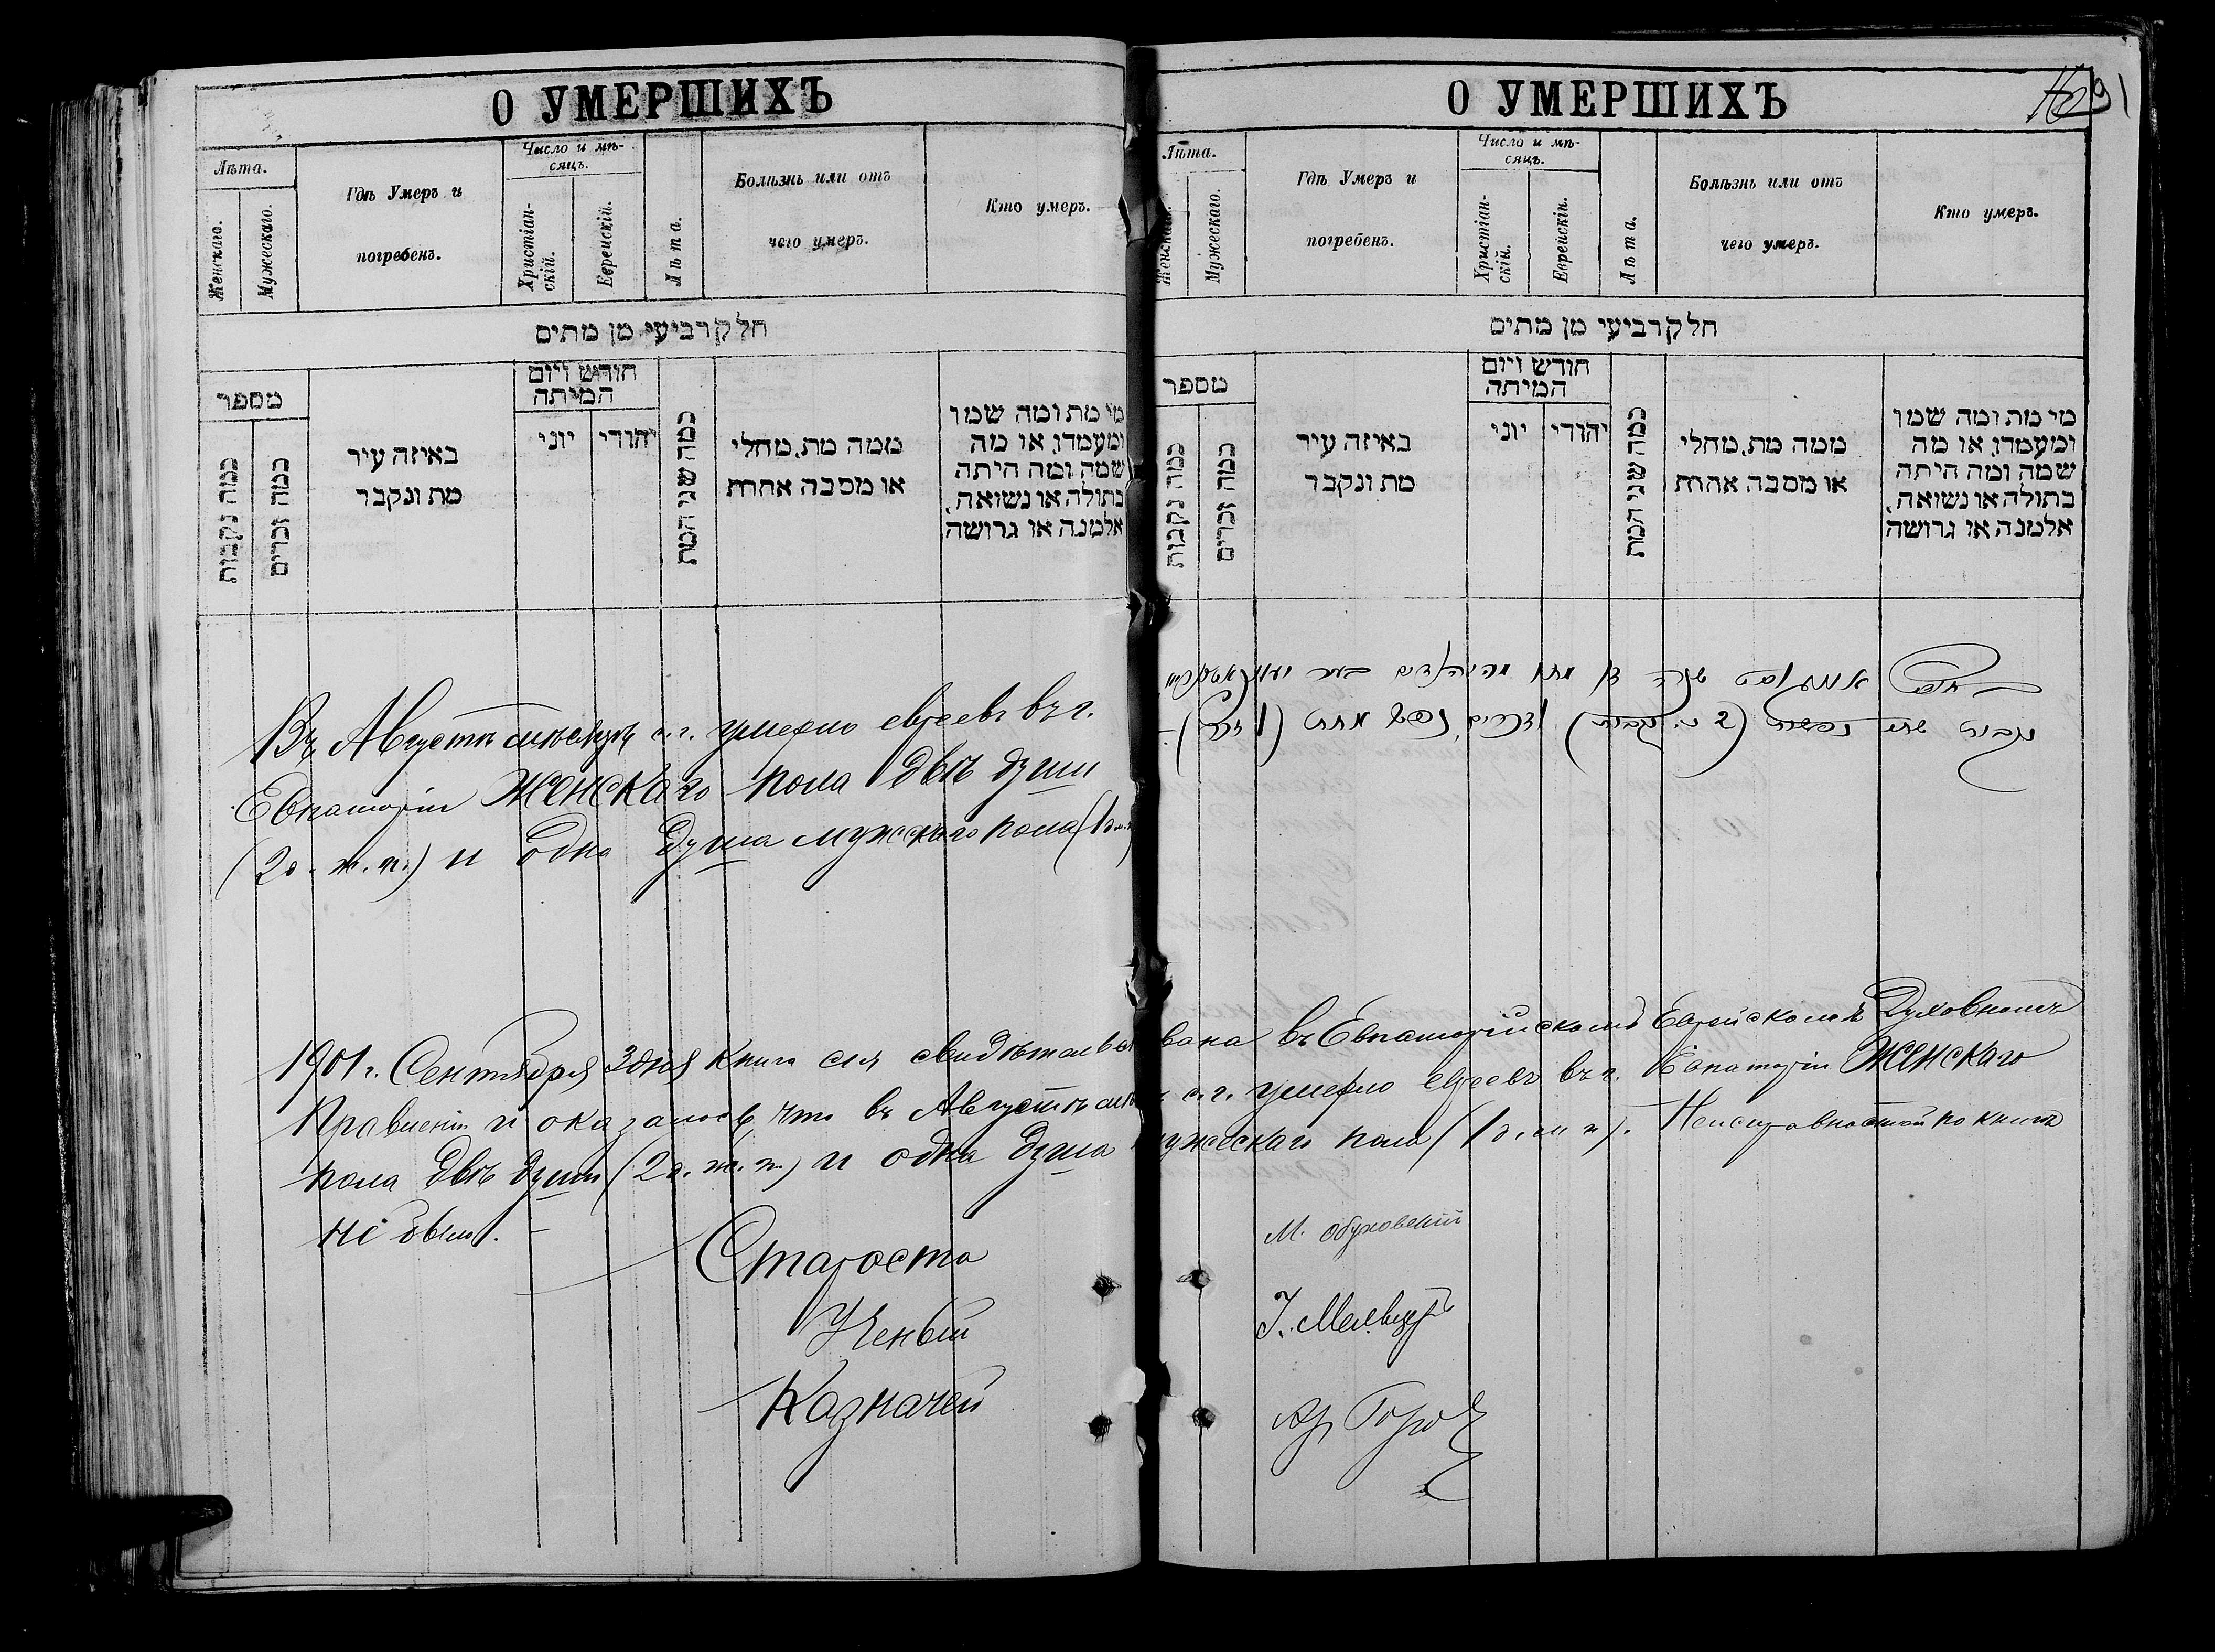 О УМЕРШИХЪ
Лѣта.
Женскаго.
Мужескаго.
Гдѣ Умеръ и
погребенъ.
Число и мѣ-
сяцъ.
Христіан-
скій.
Еврейскій.
Лѣта.
Болѣзнь или отъ
чего умеръ.
Кто умеръ.
חלק רביעי מן מתים
מספר
כמה נקבות
כמה זכרים
באיזה עיר
מת ונקבר
חודש ויום
המיתה
יוני
יהודי
כמה שני המת
ממה מת, מחלי
או מסבה אחרת
מי מת ומה שמו
ומעמדו, או מה
שמה ומה היתה
בתולה או נשואה,
אלמנה או גרושה
Въ Августѣ мѣсяцѣ с. г. умерло евреевъ въ г.
Евпаторіи женскаго пола двѣ души
(2 д. ж. п.) и одна душа мужескаго пола (1 д. м.
О УМЕРШИХЪ
91
Лѣта.
Женскаго.
Мужескаго.
Гдѣ Умеръ и
погребенъ.
Число и мѣ-
сяцъ.
Христіан-
скій.
Еврейскій.
Лѣта.
Болѣзнь или отъ
чего умеръ.
Кто умеръ.
חלק רביעי מן מתים
מספר
כמה נקבות
כמה זכרים
באיזה עיר
מת ונקבר
חודש ויום
המיתה
יוני
יהודי
כמה שני המת
ממה מת, מחלי
או מסבה אחרת
מי מת ומה שמו
ומעמדו, או מה
שמה ומה היתה
בתולה או נשואה,
אלמנה או גרושה
חודש אווגוסט שנה זו מתו מהיהודים בעיר
נקבות שתי נפשות (2 נ. נקבות) וזכרים נפש אחת (1 זכר)
1901 г. Сентября 3 дня книга сія свидѣтельствована въ Евпаторійскомъ Еврейскомъ Духовномъ
Правленіи и оказалось что въ Августѣ мѣс. с. г. умерло евреевъ въ г. Евпаторіи женскаго
пола двѣ души (2 д. ж. п.) и одна душа мужескаго пола (1 д. м. п.). Неисправностей по книгѣ
не было. —
Староста М. Обуховскій
Ученый
Казначей